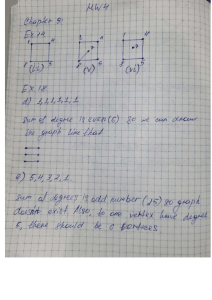 HW4
Chapter 9
Ex 14
(iii) (v) (vi)
Ex 18
1) 1,1,1,1,1,1
Sum of degree is even (6) so we can draw
the graph like that
e) 5,4,3,2,1
Sum of degrees is odd number (15) so graph
doesn't exist. Also, to one vertex have degree
5, there should be 6 vertices